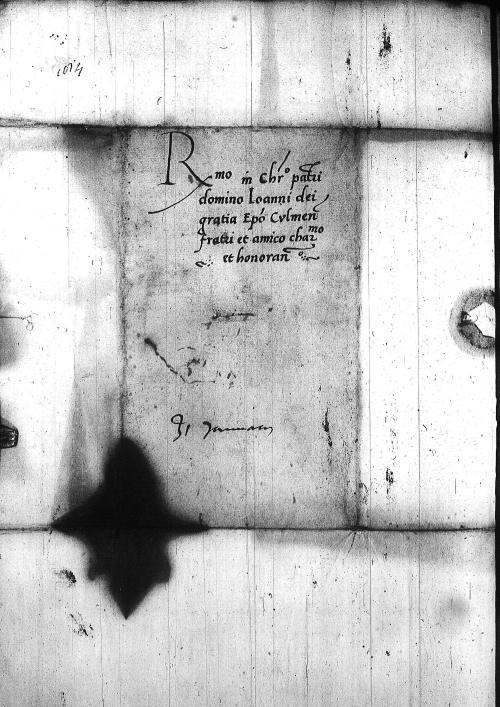 1614
Rmo in Chro patri
domino Ioanni dei
gratia Epo Culmen
fratri et amico charmo
et honoran
31 Januarii